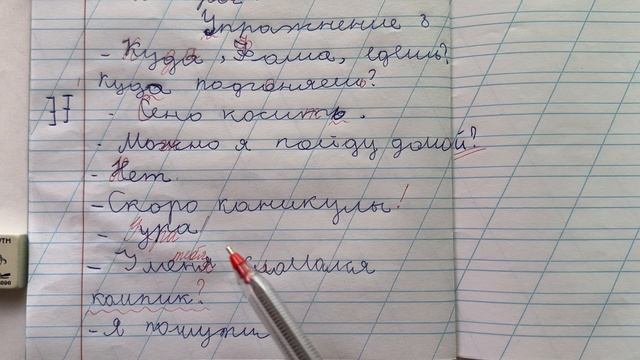 Упражнение 3
- Куда, Фома, едешь?
куда подгоняешь?
- Сено косить.
- Можно я пойду домой?
- Нет.
- Скоро каникулы!
- ура
- У меня сломался
компик?
- Я пошутил